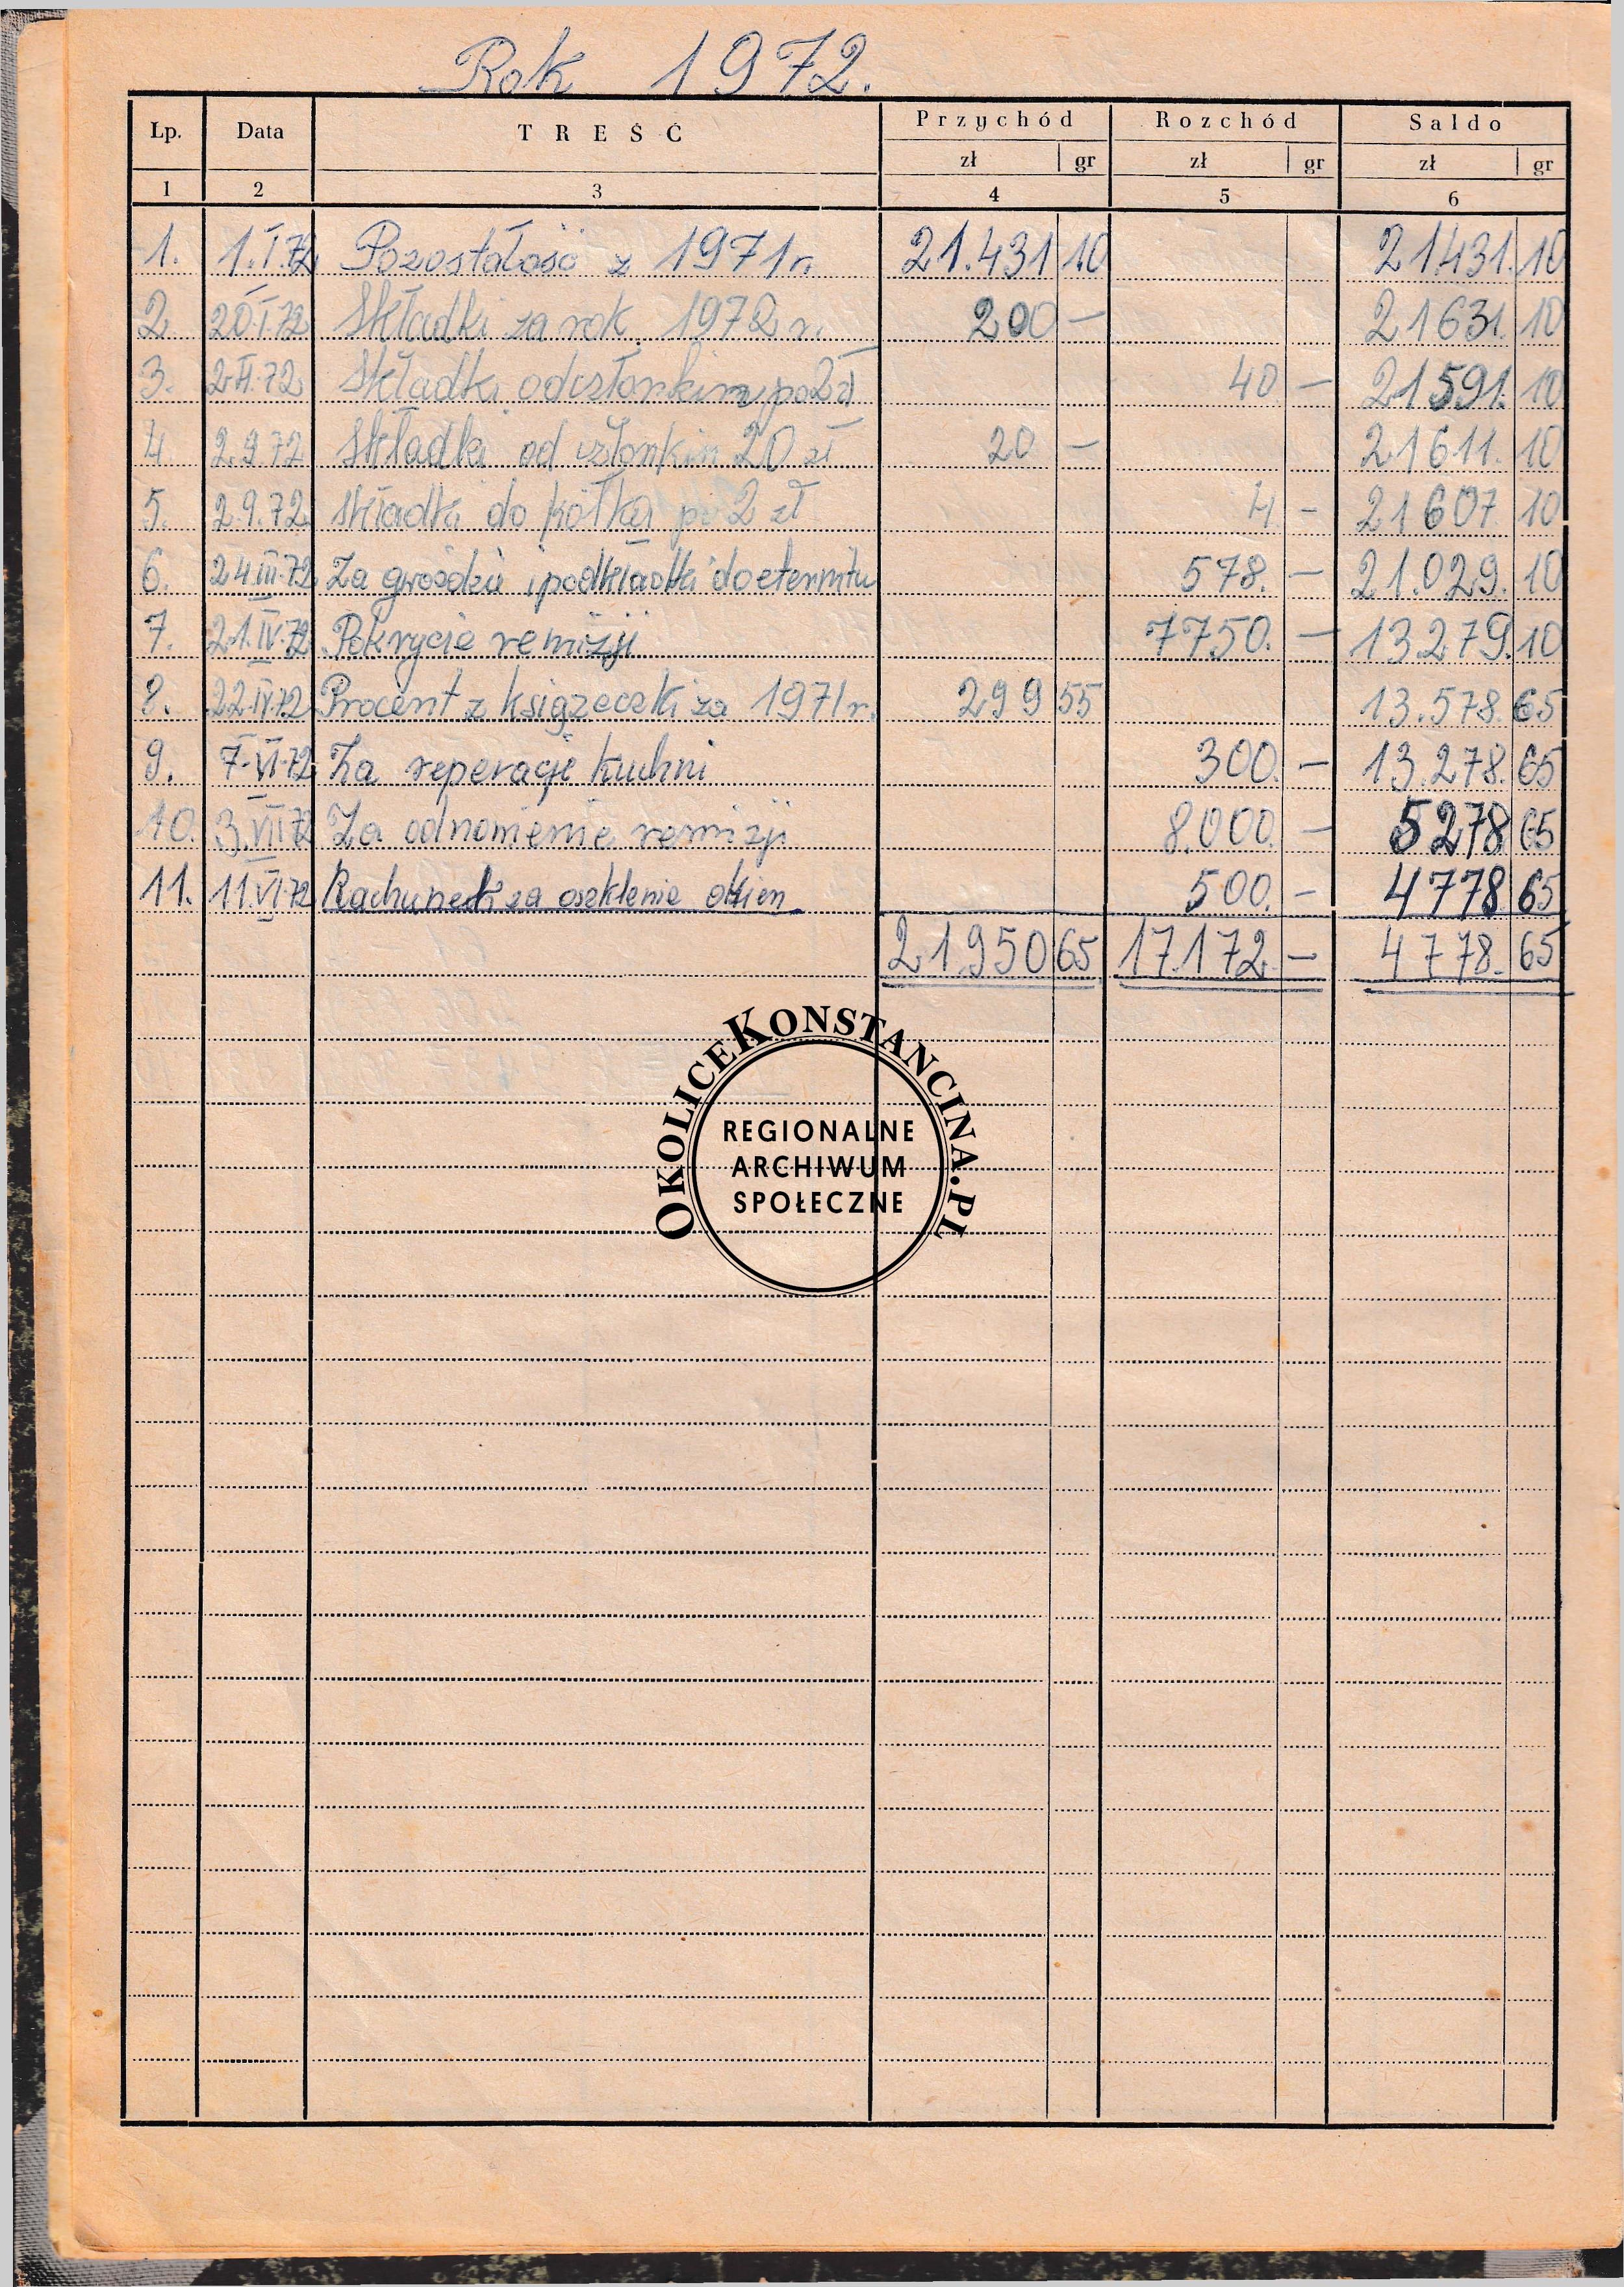 Rok 1972.
Lp. Data TREŚĆ Przychód Rozchód Saldo
zł gr zł gr zł gr
1 2 3 4 5 6
1. 1.I.72 Pozostałość z 1971 r. 21.431 10 21431. 10
2. 20.I.72 Składki za rok 1972 r. 200 — 21631. 10
3. 2.II.72 Składki od członkiń po 2 zł 40 — 21591. 10
4. 2.9.72 Składki od członkiń 20 zł 20 — 21611. 10
5. 2.9.72 Składki do kółka po 2 zł 4. - 21607 10
6. 24.III.72 Za gwoździe i podkładki do eternitu 578. — 21.029. 10
7. 21.IV.72 Pokrycie remizji 7750. — 13279. 10
8. 22.IV.72 Procent z książeczki za 1971 r. 299 55 13.578. 65
9. 7.VI.72 Za reperacje kuchni 300. — 13.278. 65
10. 3.VII.72 Za odnowienie remizji 8.000. — 5278 65
11. 11.VI.72 Rachunek za oszklenie okien 500. - 4778 65
21.950 65 17.172 — 4778. 65
OKOLICEKONSTANCINA.PL
REGIONALNE
ARCHIWUM
SPOŁECZNE